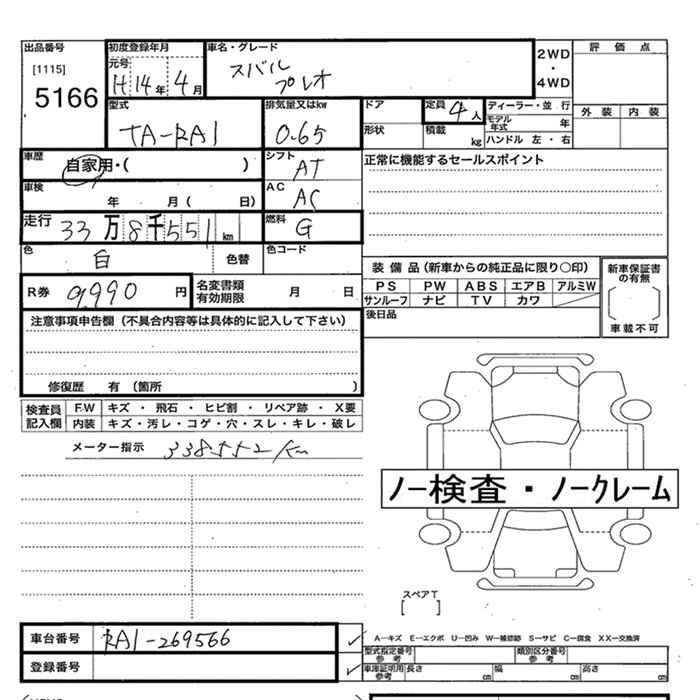 出品番号
[1115]
5166
初度登録年月
元号
H14年 4月
車名・グレード
スバル
プレオ
2WD
・
4WD
評価点
外装 内装
型式
TA-RA1
排気量又はkw
0.65
ドア
形状
定員 4人
積載 kg
ディーラー・並行
モデル年式 年
ハンドル 左・右
車歴
自家用・( )
シフト
AT
正常に機能するセールスポイント
車検
年 月( 日)
AC
AC
走行
33万8千551km
燃料
G
色
白
色替
色コード
R券 9,990 円
名変書類
有効期限
月 日
装備品(新車からの純正品に限り○印)
PS PW ABS エアB アルミW
サンルーフ ナビ TV カワ
後日品
新車保証書
の有無
車載不可
注意事項申告欄(不具合内容等は具体的に記入して下さい)
修復歴 有 (箇所 )
検査員
記入欄
FW キズ・飛石・ヒビ割・リペア跡・X要
内装 キズ・汚レ・コゲ・穴・スレ・キレ・破レ
メーター指示 338552km
ノー検査・ノークレーム
スペアT
[ ]
車台番号 RA1-269566
登録番号
A―キズ E―エクボ U―凹み W―補修跡 S―サビ C―腐食 XX―交換済
型式指定番号
参考
類別区分番号
参考
車庫証明用
参考
長さ cm 幅 cm 高さ cm